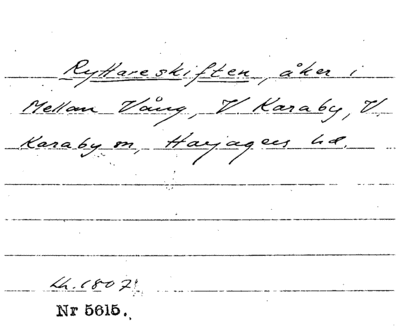 Ryttareskiften, åker i
Mellan Vång, V Karaby, V
Karaby sn, Harjagers hd.
Lh. 1807.
Nr 5615.